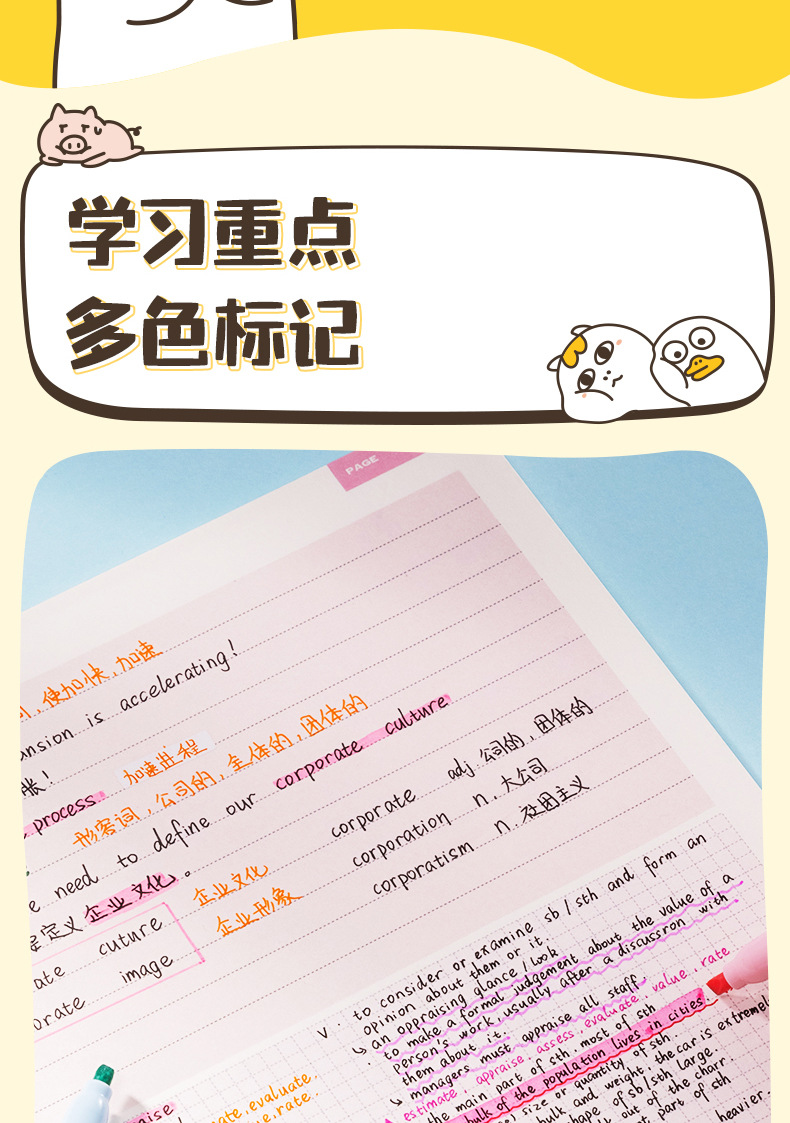 学习重点
多色标记
PAGE
,使加快,加速
ansion is accelerating!
胀!
加速进程
process.
形容词,公司的,全体的,团体的
need to define our corporate culture
定义企业文化。
企业文化
企业形象
ate cuture
orate image
corporate adj 公司的,团体的
corporation n. 大公司
corporatism n. 社团主义
v. to consider or examine sb/sth and form an
opinion about them or it.
an appraising glance/look
to make a formal judgement about the value of a
person's work, usually after a discussron with
them about it.
managers must appraise all staff
estimate appraise. assess. evaluate. value. rate
the main part of sth. most of sth
bulk of the population lives in cities.
size or quantity of sth.
bulk and weight, the car is extremel
shape of sb/sth large.
out of the charr.
part of sth
heavier.
ate, evaluate.
e, rate.